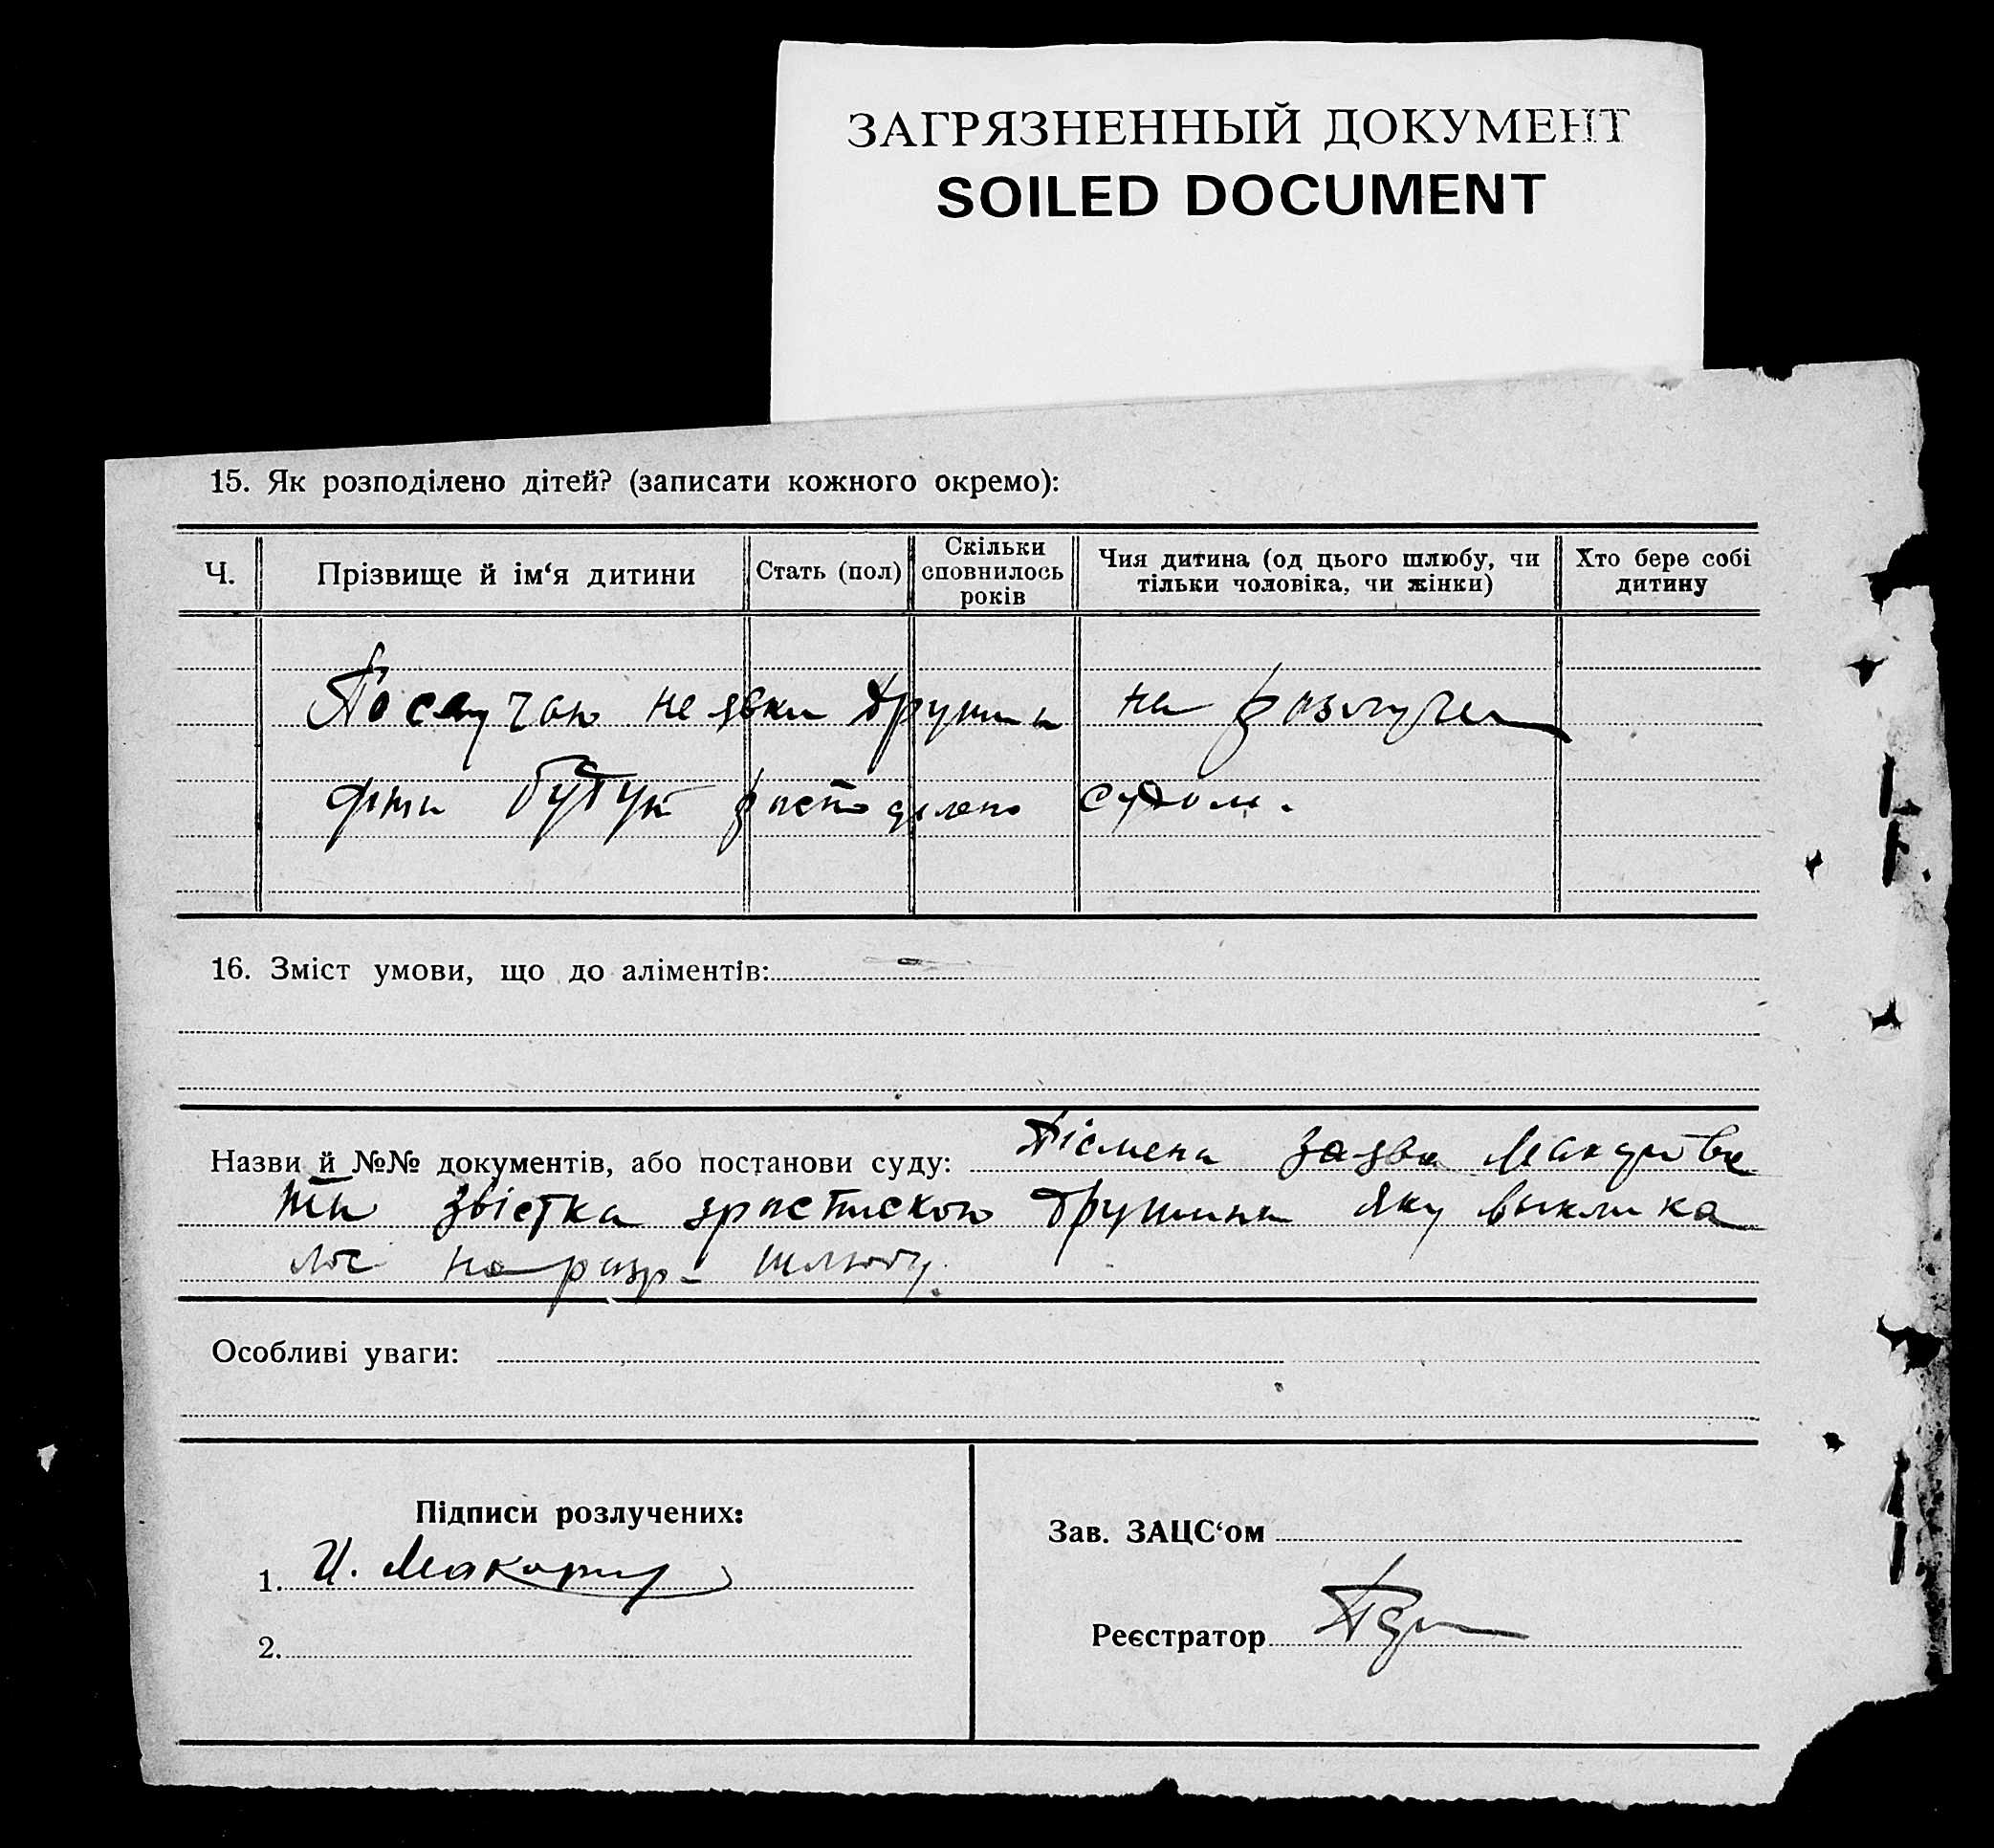 ЗАГРЯЗНЕННЫЙ ДОКУМЕНТ
SOILED DOCUMENT
15. Як розподілено дітей? (записати кожного окремо):
Ч.
Прізвище й ім‘я дитини
Стать (пол)
Скільки сповнилось років
Чия дитина (од цього шлюбу, чи тільки чоловіка, чи жінки)
Хто бере собі дитину
По случаю не явки дружини на
діти будуть росподілено судом.
16. Зміст умови, що до аліментів:
Назви й №№ документів, або постанови суду: Пісмена заява
звістка зросписκою дружини яку выклика
лос на розр- шлюбу.
Особливі уваги:
Підписи розлучених:
1. И.
2.
Зав. ЗАЦС‘ом
Реєстратор